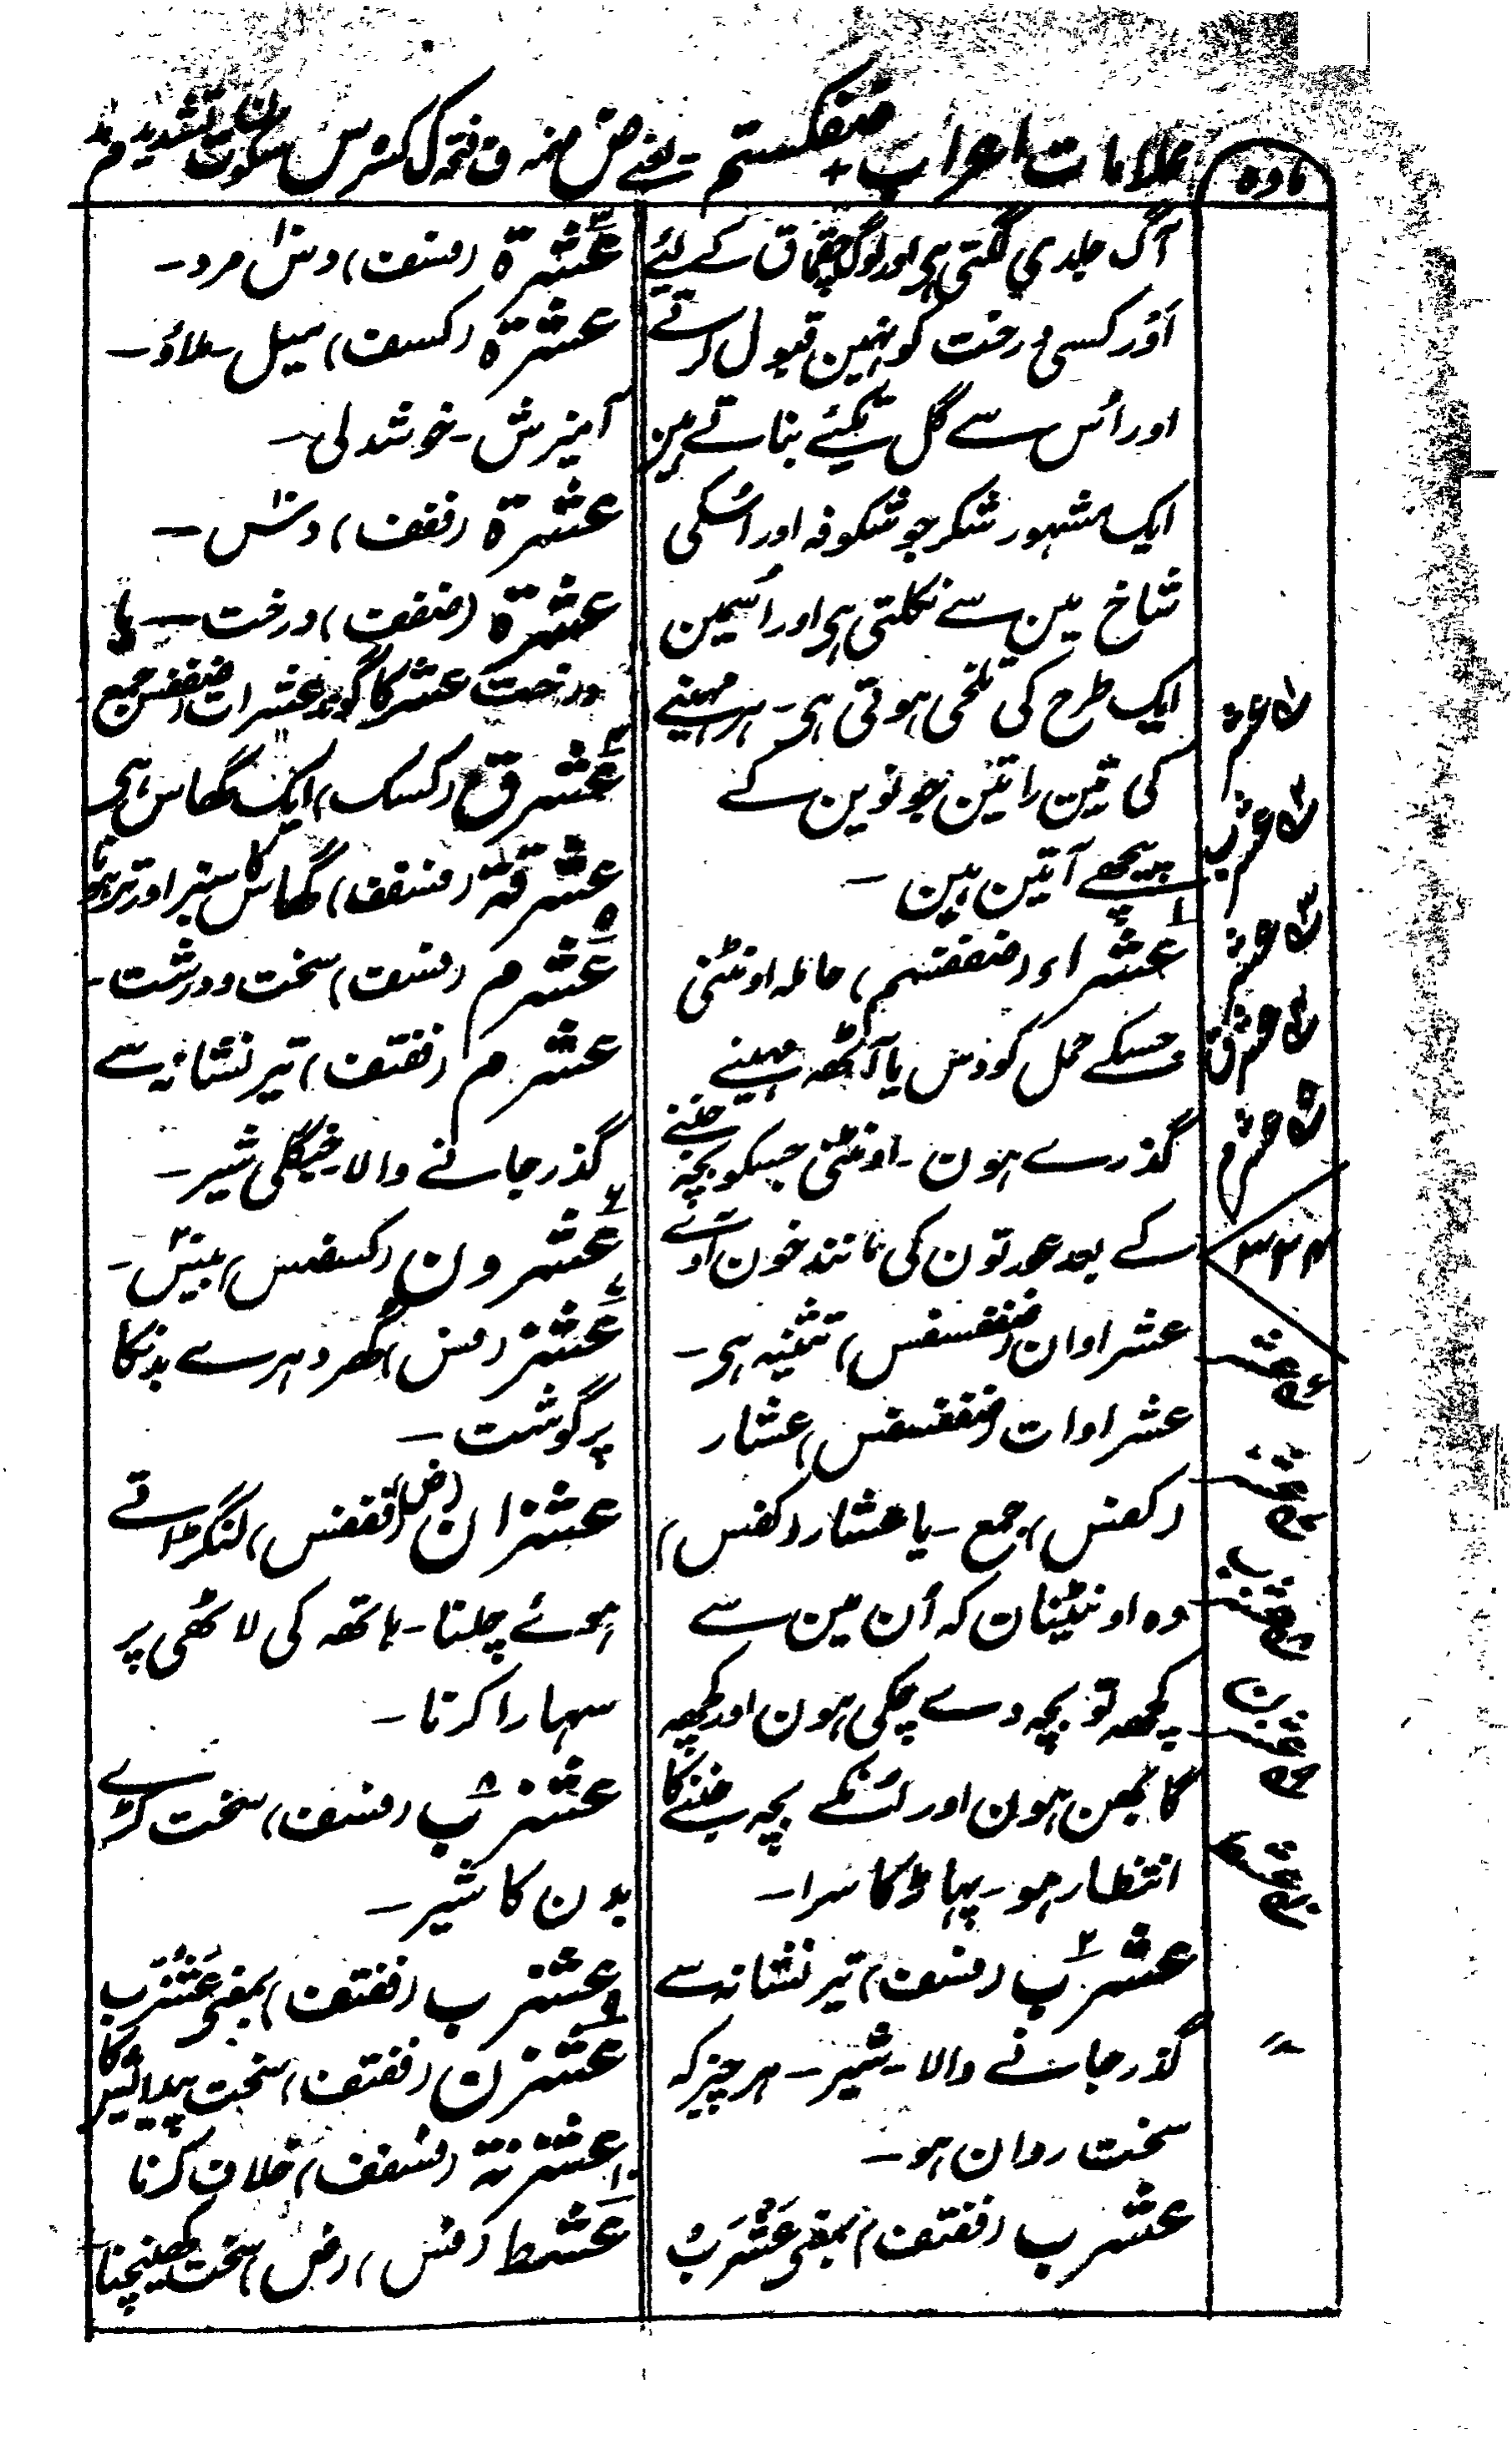 مادہ
علامات اعراب ضفکستم ۔ یعنے ض ضمہ ف فتحہ ک کسرہ س سکون ت تشدید م مد
آگ جلدی لگتی ہی اور لوگ چقماق کے لئے
اَوْر کسی درخت کو نہین قبول کرتے
اور اُس سے گل تکئے بناتے ہین
ایک مشہور شکر جو شگوفہ اور اسکی
شاخ مین سے نکلتی ہی اور اُسمین
ایک طرح کی تلخی ہوتی ہی ۔ ہر مہینے
کی تین راتین جو نوین کے
پیچھے آتین ہین ۔
۱ عشراء (ضففتسم) حاملہ اونٹنی
جسکے حمل کو دس یا آٹھہ مہینے
گذرے ہون ۔ اونٹنی جسکو بچہ جننے
کے بعد عورتون کی مانند خون آوے
عشراوان (ضففسفس) تثنیہ ہی ۔
عشراوات (ضففسفس) عشار
(کفس) جمع ۔ یا عشار (کفس)
وہ اونٹنیان کہ اُن مین سے
کچھہ تو بچہ دے چکی ہون اور کچھہ
گابھن ہون اور اُنکے بچہ جننے کا
انتظار ہو ۔ پہاڑ کا سرا ۔
۲ عشرب (فسف) تیر نشانہ سے
گذر جانے والا ۔ شیر ۔ ہر چیز کہ
سخت روان ہو ۔
عشرب (ففتف) بمعنی عَشْرَبْ
۳ عشرۃ (فسف) دس مرد ۔
عشرۃ (کسف) میل ۔ ملاؤ ۔
آمیزش ۔ خوشدلی ۔
عشرۃ (ففف) دس ۔
عشرۃ (ضفف) درخت ۔ یا
درخت عشر کا گوند عشرات ضففس جمع
۴ عشرق (کسک) ایک گھاس ہی
عشرقۃ (فسفف) گھاس کا سبز اور تر ہونا
۵ عشرم (فسف) سخت و درشت ۔
عشرم (ففتف) تیر نشانہ سے
گذر جانے والا ۔ جنگلی شیر ۔
۶ عشرون (کسضس) بیس ۔
۷ عشز (فس) گھر دہرے بدنکا
پر گوشت ۔
عشزان (ض) (فففس) لنگڑاتے
ہوئے چلنا ۔ ہاتھہ کی لاٹھی پر
سہارا کرنا ۔
۸ عشزب (فسف) سخت کڑے
بدن کا شیر ۔
عشزب (ففتف) بمعنی عَشْزَب
۹ عشزن (ففتف) سخت پیدائیش کا
عشزنۃ (فسفف) خلاف کرنا
۱۰ عشط (فس) (ض) سخت کھینچنا